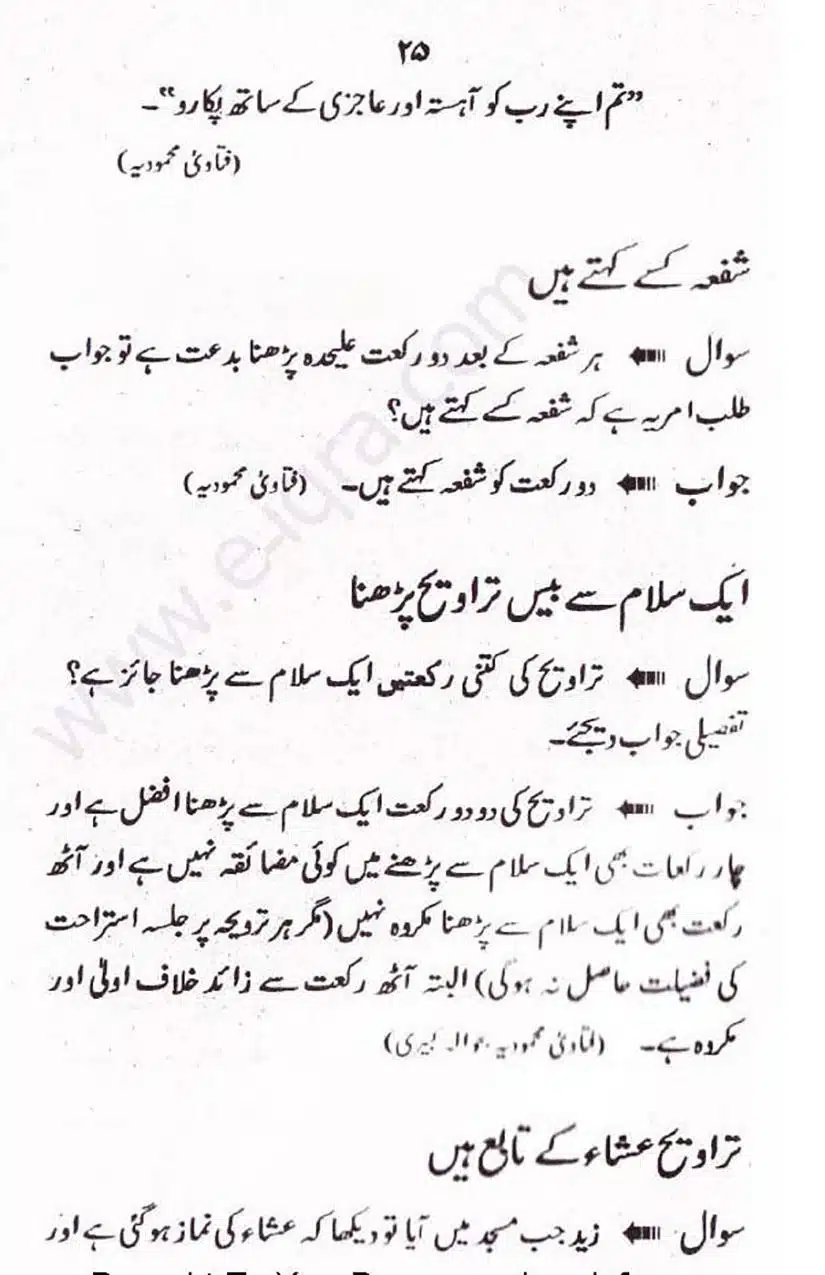 ۲۵
”تم اپنے رب کو آہستہ اور عاجزی کے ساتھ پکارو“۔
(فتاویٰ محمودیہ)
شفعہ کسے کہتے ہیں
سوال ہر شفعہ کے بعد دو رکعت علیحدہ پڑھنا بدعت ہے تو جواب
طلب امر یہ ہے کہ شفعہ کسے کہتے ہیں؟
جواب دو رکعت کو شفعہ کہتے ہیں۔ (فتاویٰ محمودیہ)
ایک سلام سے بیس تراویح پڑھنا
سوال تراویح کی کتنی رکعتیں ایک سلام سے پڑھنا جائز ہے؟
تفصیلی جواب دیجئے۔
جواب تراویح کی دو دو رکعت ایک سلام سے پڑھنا افضل ہے اور
چار رکعات بھی ایک سلام سے پڑھنے میں کوئی مضائقہ نہیں ہے اور آٹھ
رکعت بھی ایک سلام سے پڑھنا مکروہ نہیں (مگر ہر ترویحہ پر جلسہ استراحت
کی فضیلت حاصل نہ ہوگی) البتہ آٹھ رکعت سے زائد خلاف اولیٰ اور
مکروہ ہے۔ (فتاویٰ محمودیہ بحوالہ کبیری)
تراویح عشاء کے تابع ہیں
سوال زید جب مسجد میں آیا تو دیکھا کہ عشاء کی نماز ہوگئی ہے اور
www.e-iqra.com